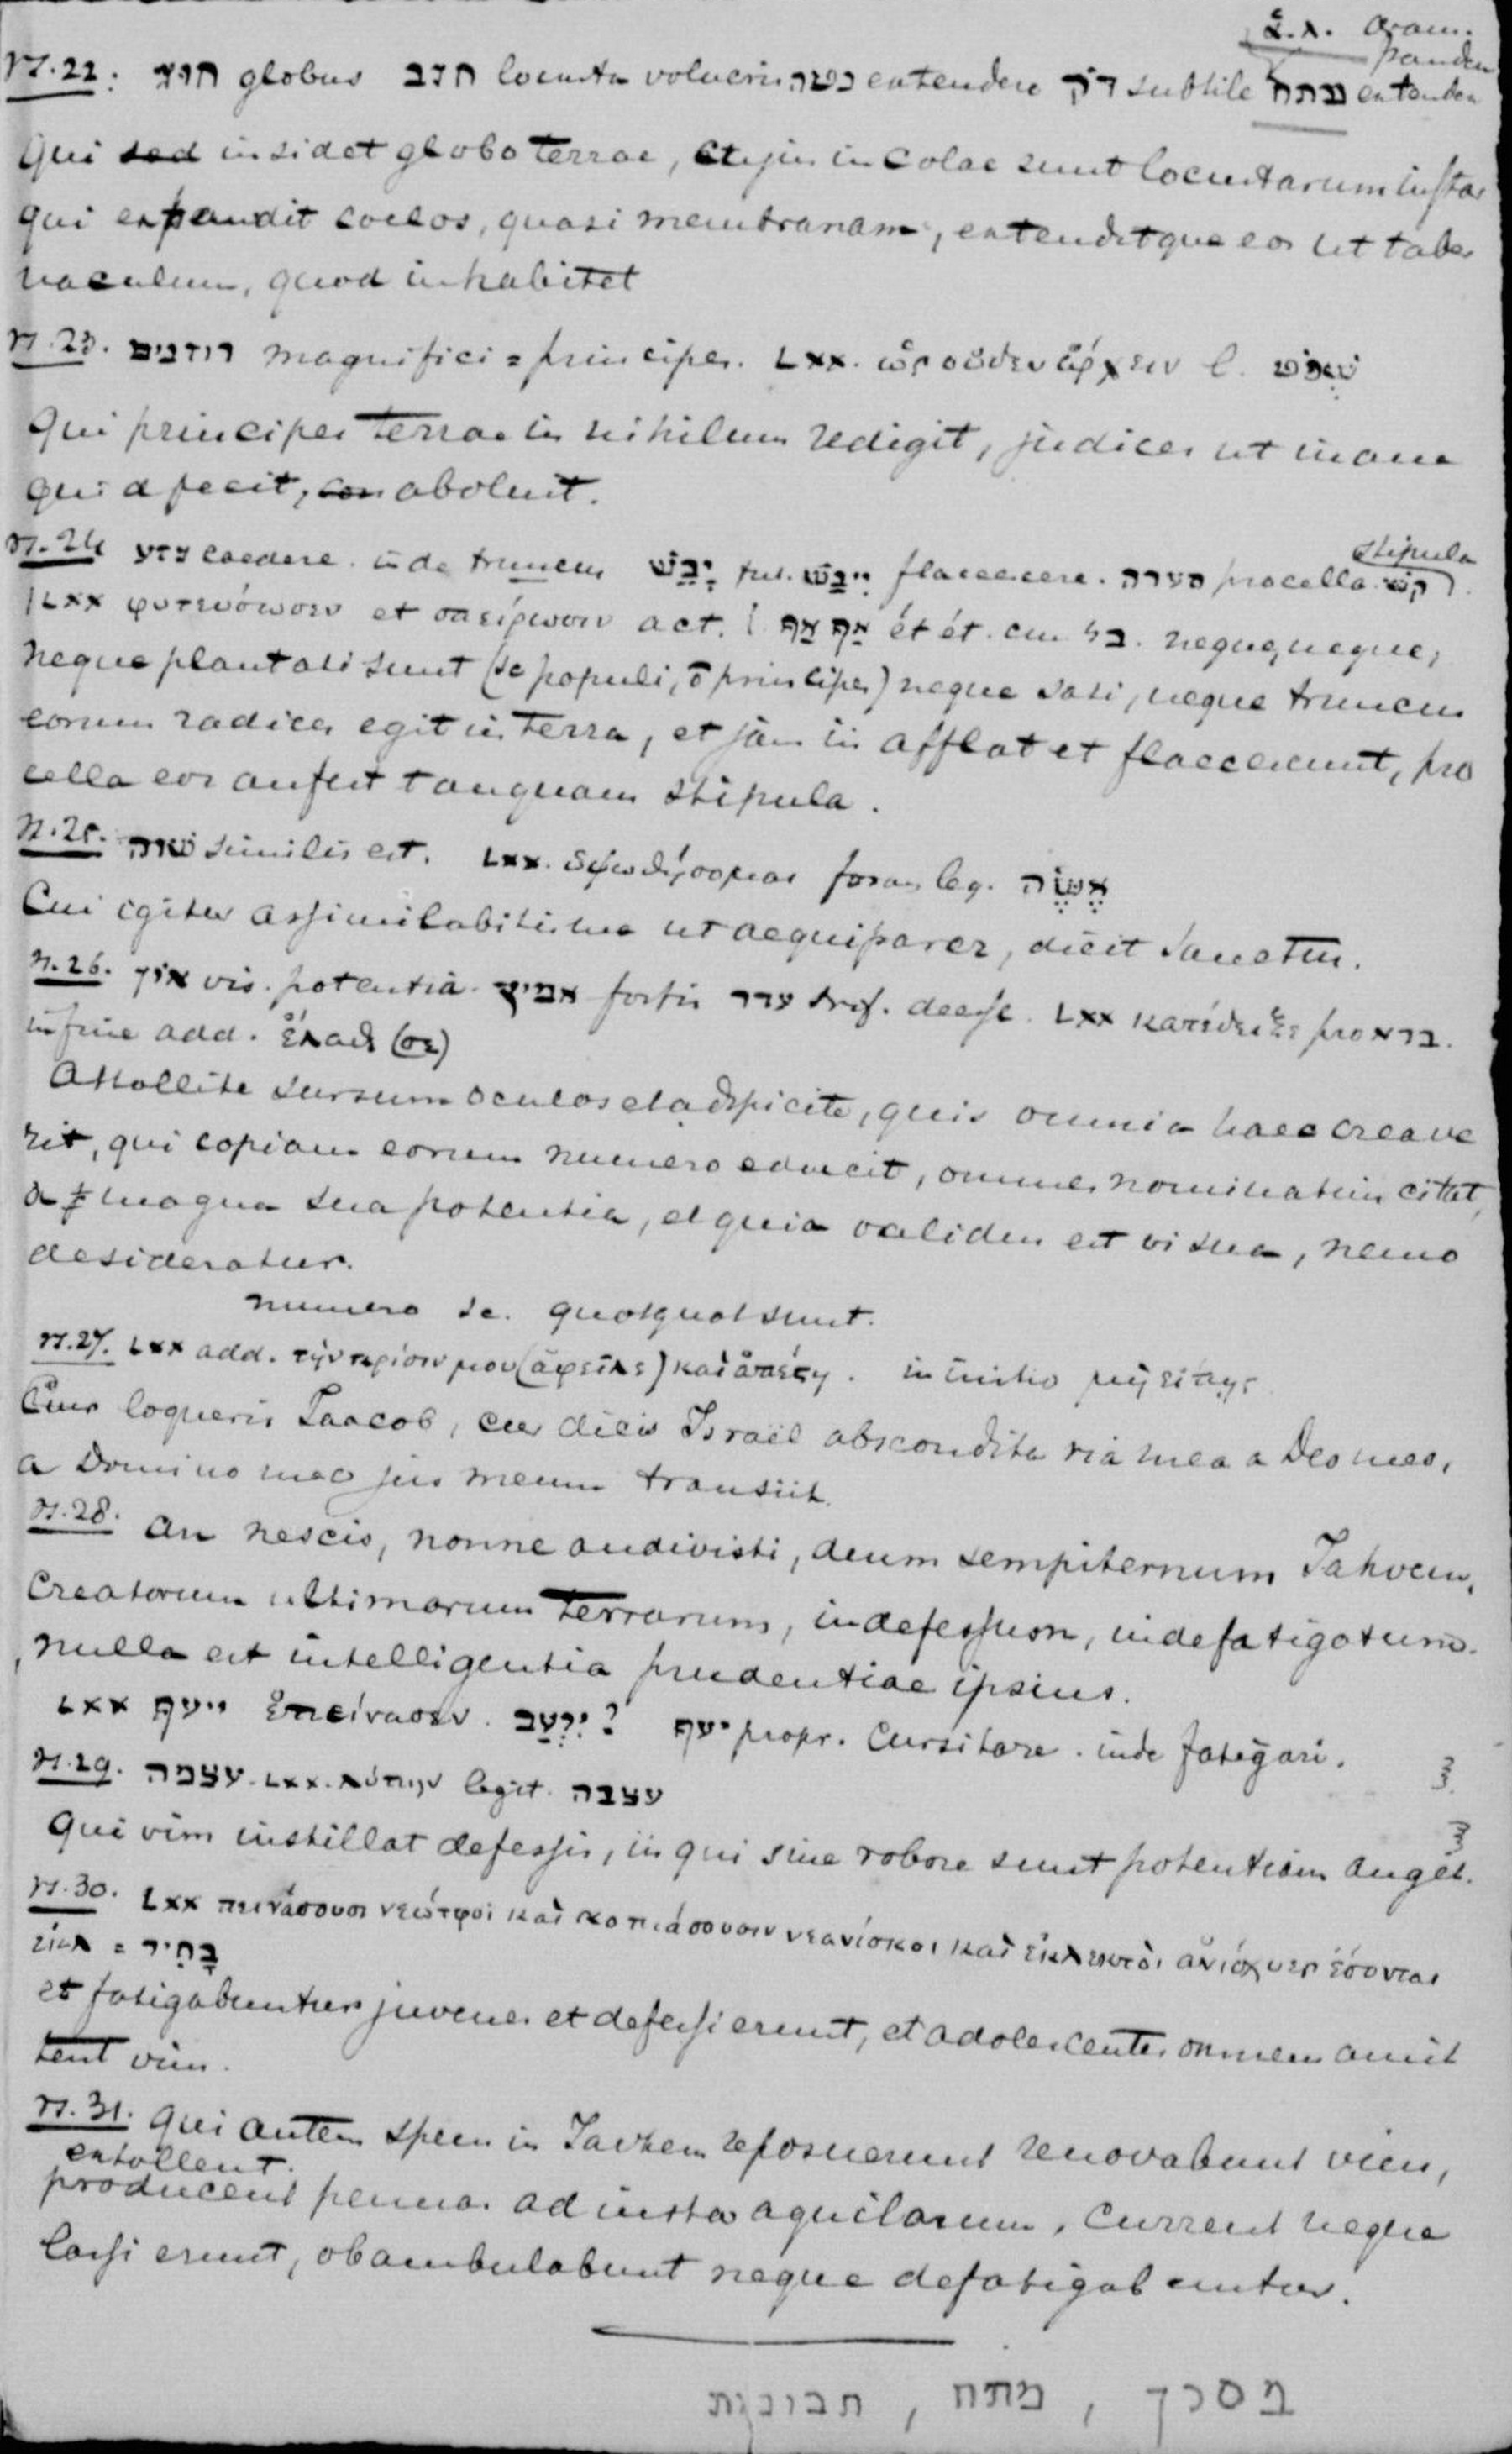 ἅ.λ. aram.
pandere
vs. 22. חוג globus חגב locusta volucris נטה extendere דֹּק subtile מתח extendere
Qui sed insidet globo terrae, cujus incolae sunt locustarum instar
qui expandit coelos, quasi membranam, extenditque eos ut taber
naculum, quod inhabitet
vs. 23. רוזנים magnifici = principes. LXX. ὡς οὐδὲν ἄρχειν l.
Qui principes terrae in nihilum redigit, judices ut inane
quid fecit, con abolent.
stipula
vs. 24 גזע caedere. inde truncus יָבֵשׁ fut. יִיבַשׁ flaccescere. סערה procella. קַשׁ
LXX φυτεύσωσιν et σπείρωσιν act. אַף אַף et et. cum בל. neque, neque,
neque plantati sunt (sc populi, principes) neque sati, neque truncus
eorum radices egit in terra, et jam iis afflat et flaccescunt, pro
cella eos aufert tanquam stipula.
vs. 25. שׁוה similis est. LXX. ὑψωθήσομαι forsan leg.
Cui igitur assimilabitis me ut aequiparer, dicit Sanctus.
vs. 26. און vis. potentia. אמיץ fortis עדר trsf. deesse. LXX κατέδειξε pro ברא.
in fine add. ἔλαθέ (σε)
Attollite sursum oculos et adspicite, quis omnia haec creave
rit, qui copiam eorum numero educit, omnes nominatim citat,
a magna sua potentia, et quia validus est vi sua, nemo
desideratur.
numero sc. quotquot sunt.
vs. 27. LXX add. τὴν κρίσιν μου (ἀφεῖλε) καὶ ἀπέστη. in initio μὴ εἴπῃς
Cur loqueris Jaacob, cur dicis Israël abscondita via mea a Deo meo,
a Domino meo jus meum transiit.
vs. 28. An nescis, nonne audivisti, deum sempiternum Jahvem,
Creatorem ultimarum terrarum, indefessum, indefatigatum.
nulla est intelligentia prudentiae ipsius.
LXX ייעף ἐπείνασεν. יִרְעַב? יעף propr. cursitare. inde fatigari.
vs. 29. עצמה. LXX. λύπην legit. עצבה
Qui vim instillat defessis, iis qui sine robore sunt potentiam auget.
vs. 30. LXX πεινάσουσι νεώτεροι καὶ κοπιάσουσιν νεανίσκοι καὶ ἐκλεκτοὶ ἀνίσχυες ἔσονται
בָּחִיר =
et fatigabuntur juvenes et defessi erunt, et adolescentes omnem amit
tent vim.
vs. 31. Qui autem spem in Javhem reposuerunt renovabunt vim,
extollent.
producent pennas ad instar aquilarum. Current neque
lassi erunt, obambulabunt neque defatigabuntur.
מסכן , מתח , תבונות